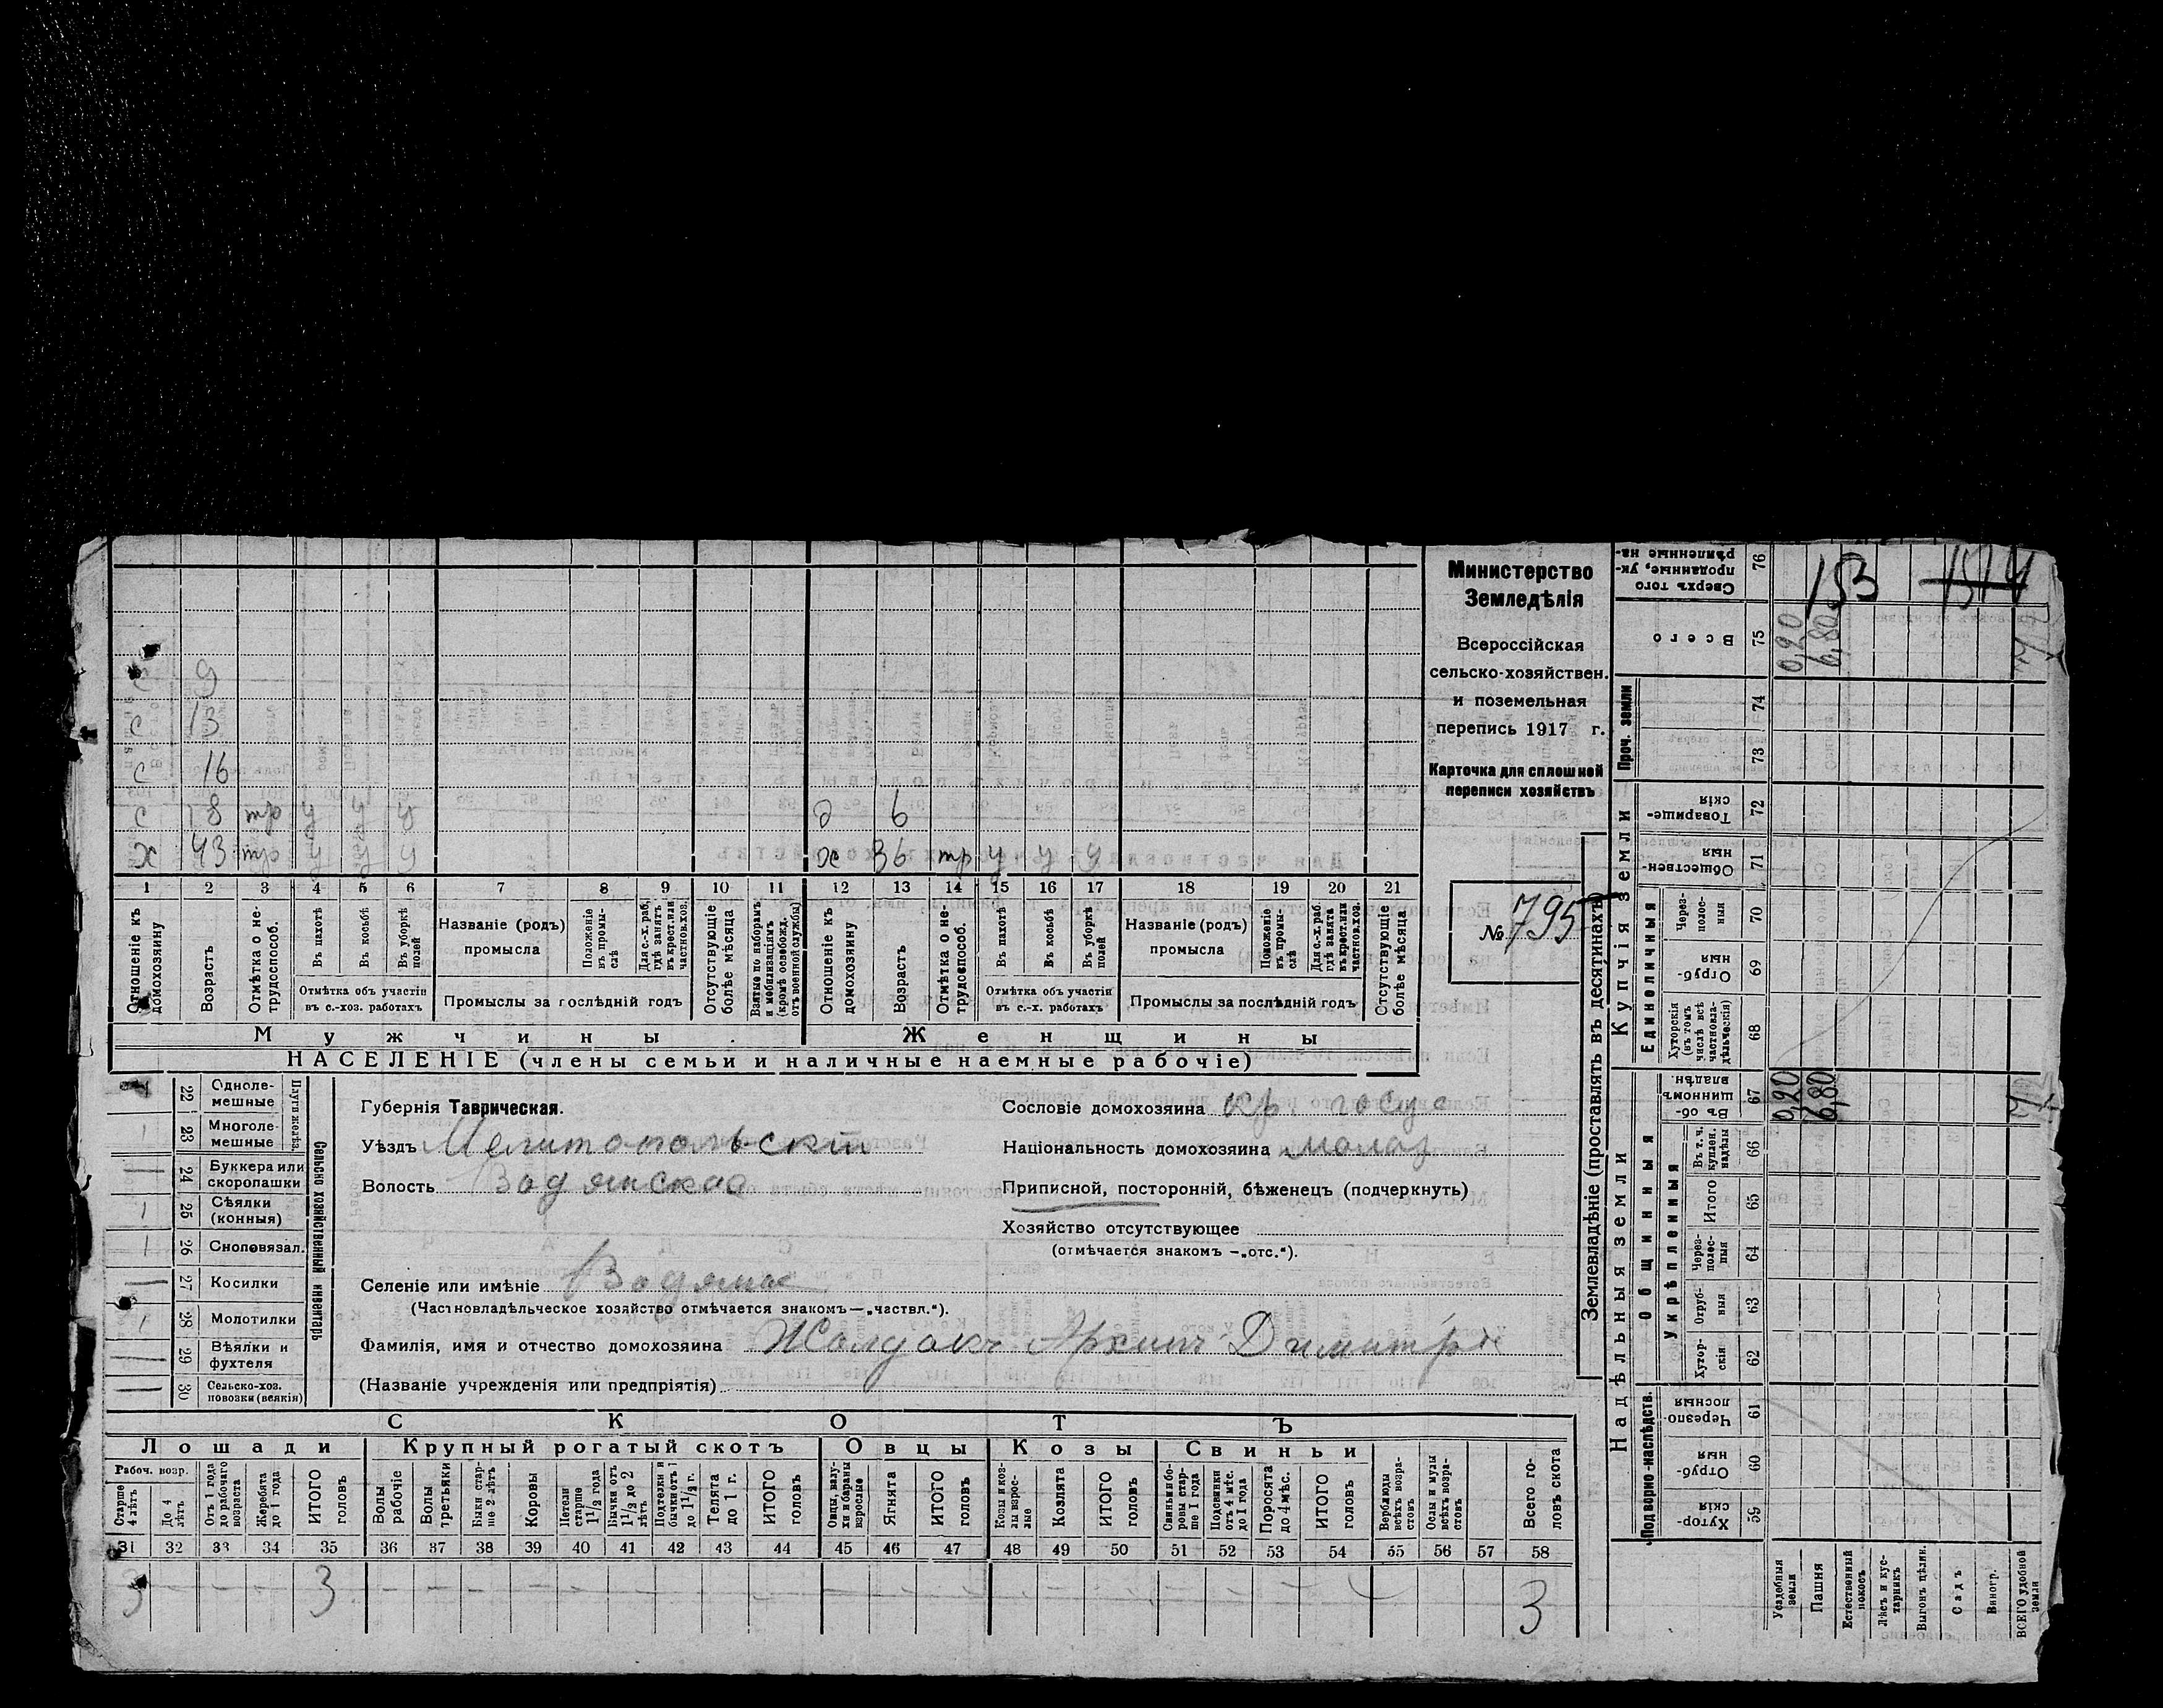 Министерство
Земледѣлія
Всероссійская
сельско-хозяйствен.
и поземельная
перепись 1917 г.
Карточка для сплошной
переписи хозяйствъ
№ 795
153
1514
с 9
с 13
с 16
с 18 тр у у у д 6
х 43 тр у у у ж 36 тр у у у
1 2 3 4 5 6 7 8 9 10 11 12 13 14 15 16 17 18 19 20 21
Отношеніе къ домохозяину
Возрастъ
Отмѣтка о нетрудоспособ.
Въ пахотѣ
Въ косьбѣ
Въ уборкѣ полей
Отмѣтка объ участіи
въ с.-хоз. работахъ
Названіе (родъ)
промысла
Положеніе въ промыслѣ
Для с.-х. раб. гдѣ занятъ въ крест. или частновл. хоз.
Промыслы за послѣдній годъ
Отсутствующіе болѣе мѣсяца
Взятые по наборамъ и мобилизаціямъ (кромѣ освобожд. отъ военной службы)
Отношеніе къ домохозяину
Возрастъ
Отмѣтка о нетрудоспособ.
Въ пахотѣ
Въ косьбѣ
Въ уборкѣ полей
Отмѣтка объ участіи
въ с.-х. работахъ
Названіе (родъ)
промысла
Положеніе въ промыслѣ
Для с.-х. раб. гдѣ занята въ крест. или частновл. хоз.
Промыслы за послѣдній годъ
Отсутствующіе болѣе мѣсяца
Мужчины. Женщины
НАСЕЛЕНІЕ (члены семьи и наличные наемные рабочіе)
22 Однолемешные
23 Многолемешные
Плуги желѣз.
24 Буккера или скоропашки
25 Сѣялки (конныя)
26 Сноповязал.
27 Косилки
28 Молотилки
29 Вѣялки и фухтеля
30 Сельско-хоз. повозки (всякія)
Сельско хозяйственный инвентарь
Губернія Таврическая.
Уѣздъ Мелитопольскій
Волость Водянская
Селеніе или имѣніе Водяное
(Частновладѣльческое хозяйство отмѣчается знакомъ—„частвл.“).
Фамилія, имя и отчество домохозяина Жолдакъ Архипъ Димитріе
(Названіе учрежденія или предпріятія)
Сословіе домохозяина кр. госуд
Національность домохозяина малор
Приписной, посторонній, бѣженец (подчеркнуть)
Хозяйство отсутствующее
(отмѣчается знакомъ —„отс.“).
СКОТЪ
Лошади Крупный рогатый скотъ Овцы Козы Свиньи
Рабоч. возр.
Старше 4 лѣтъ
До 4 лѣтъ
Отъ 1 года до рабочаго возраста
Жеребята до 1 года
ИТОГО головъ
Волы рабочіе
Волы третьяки
Быки старше 2-лѣтъ
Коровы
Нетели старше 1 1/2 года
Бычки отъ 1 1/2 до 2 лѣтъ
Подтелки и бычки отъ 1 до 1 1/2 г.
Телята до 1 г.
ИТОГО головъ
Овцы, валухи и бараны взрослые
Ягнята
ИТОГО головъ
Козы и козлы взрослые
Козлята
ИТОГО головъ
Свиньи и боровы старше 1 года
Подсвинки отъ 4 мѣс. до 1 года
Поросята до 4 мѣс.
ИТОГО головъ
Верблюды всѣхъ возрастовъ
Ослы и мулы всѣхъ возрастовъ
Всего головъ скота
31 32 33 34 35 36 37 38 39 40 41 42 43 44 45 46 47 48 49 50 51 52 53 54 55 56 57 58
3 3 3
Землевладѣніе (проставлять въ десятинахъ)
Надѣльныя земли
Купчія земли
Проч. земли
Подворно-наслѣдств.
Общинныя
Укрѣпленныя
Единоличныя
59 Хуторскія
60 Отрубныя
61 Черезполосныя
62 Хуторскія
63 Отрубныя
64 Черезполосныя
65 Итого
66 Въ т. ч. куплен. надѣлы
67 Въ общинномъ владѣн. 0,20 6,80
68 Хуторскія (въ томъ числѣ всѣ частновладѣльческія)
69 Отрубныя
70 Черезполосныя
71 Общественныя
72 Товарищескія
73
74
75 Всего 0,20 6,80
76 Сверхъ того проданные, укрѣпленные на-
Усадебныя земли
Пашня
Естественный покосъ
Лѣсъ и кустарникъ
Выгонъ цѣлин.
Садъ
Виногр.
ВСЕГО удобной земли